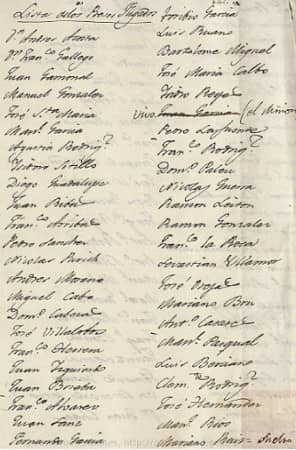 Lista de los Reos Fugados
Dn. Andres Acosta
Dn. Franco. Gallego
Juan Gamonal
Manuel Gonzalez
José Sta. Maria
Manl. Garcia
Agustin Rodrigz.
Isidro Sotillo
Diego Guadalupe
Juan Ribà
Franco. Arriba
Pedro Sanchez
Nicolas Roich
Andres Moreno
Miguel Cabo
Domo. Cabrera
José Villalobos
Franco. Herrera
Juan Izquierdo
Juan Brieba
Franco. Alvarez
Juan Sanz
Fernando Garcia
Toribio Garcia
Luis Ruano
Bartolome Miguel
José Maria Calbo
Isidro Reyes
Vivo Juan Garcia (el minimo
Pedro Lafuente
Franco. Rodrigz.
Domo. Palou
Nicolas Guerra
Ramon Leiton
Ramon Gonzalez
Franco. la Roca
Sebastian Villamor
José Rojas
Mariano Bon
Anto. Canet
Manl. Pasqual
Luis Borriano
Clemte. Rodrigz.
José Hernandez
Manl. Rico
Mariano Ruiz